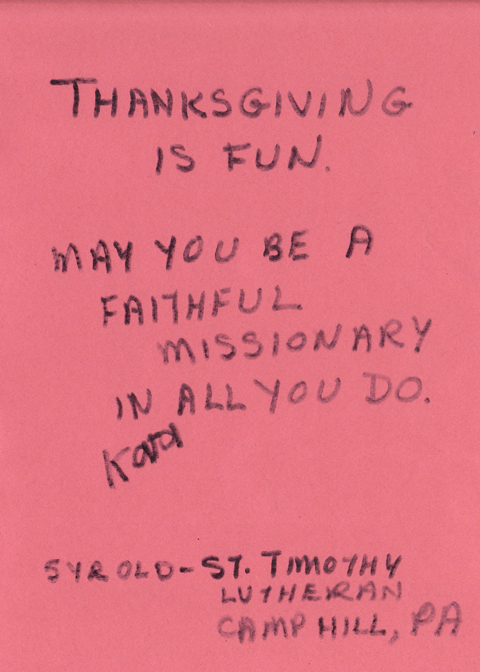 THANKSGIVING
IS FUN.
MAY YOU BE A
FAITHFUL
MISSIONARY
IN ALL YOU DO.
Kara
5 YR OLD - ST. TIMOTHY
LUTHERAN
CAMP HILL, PA